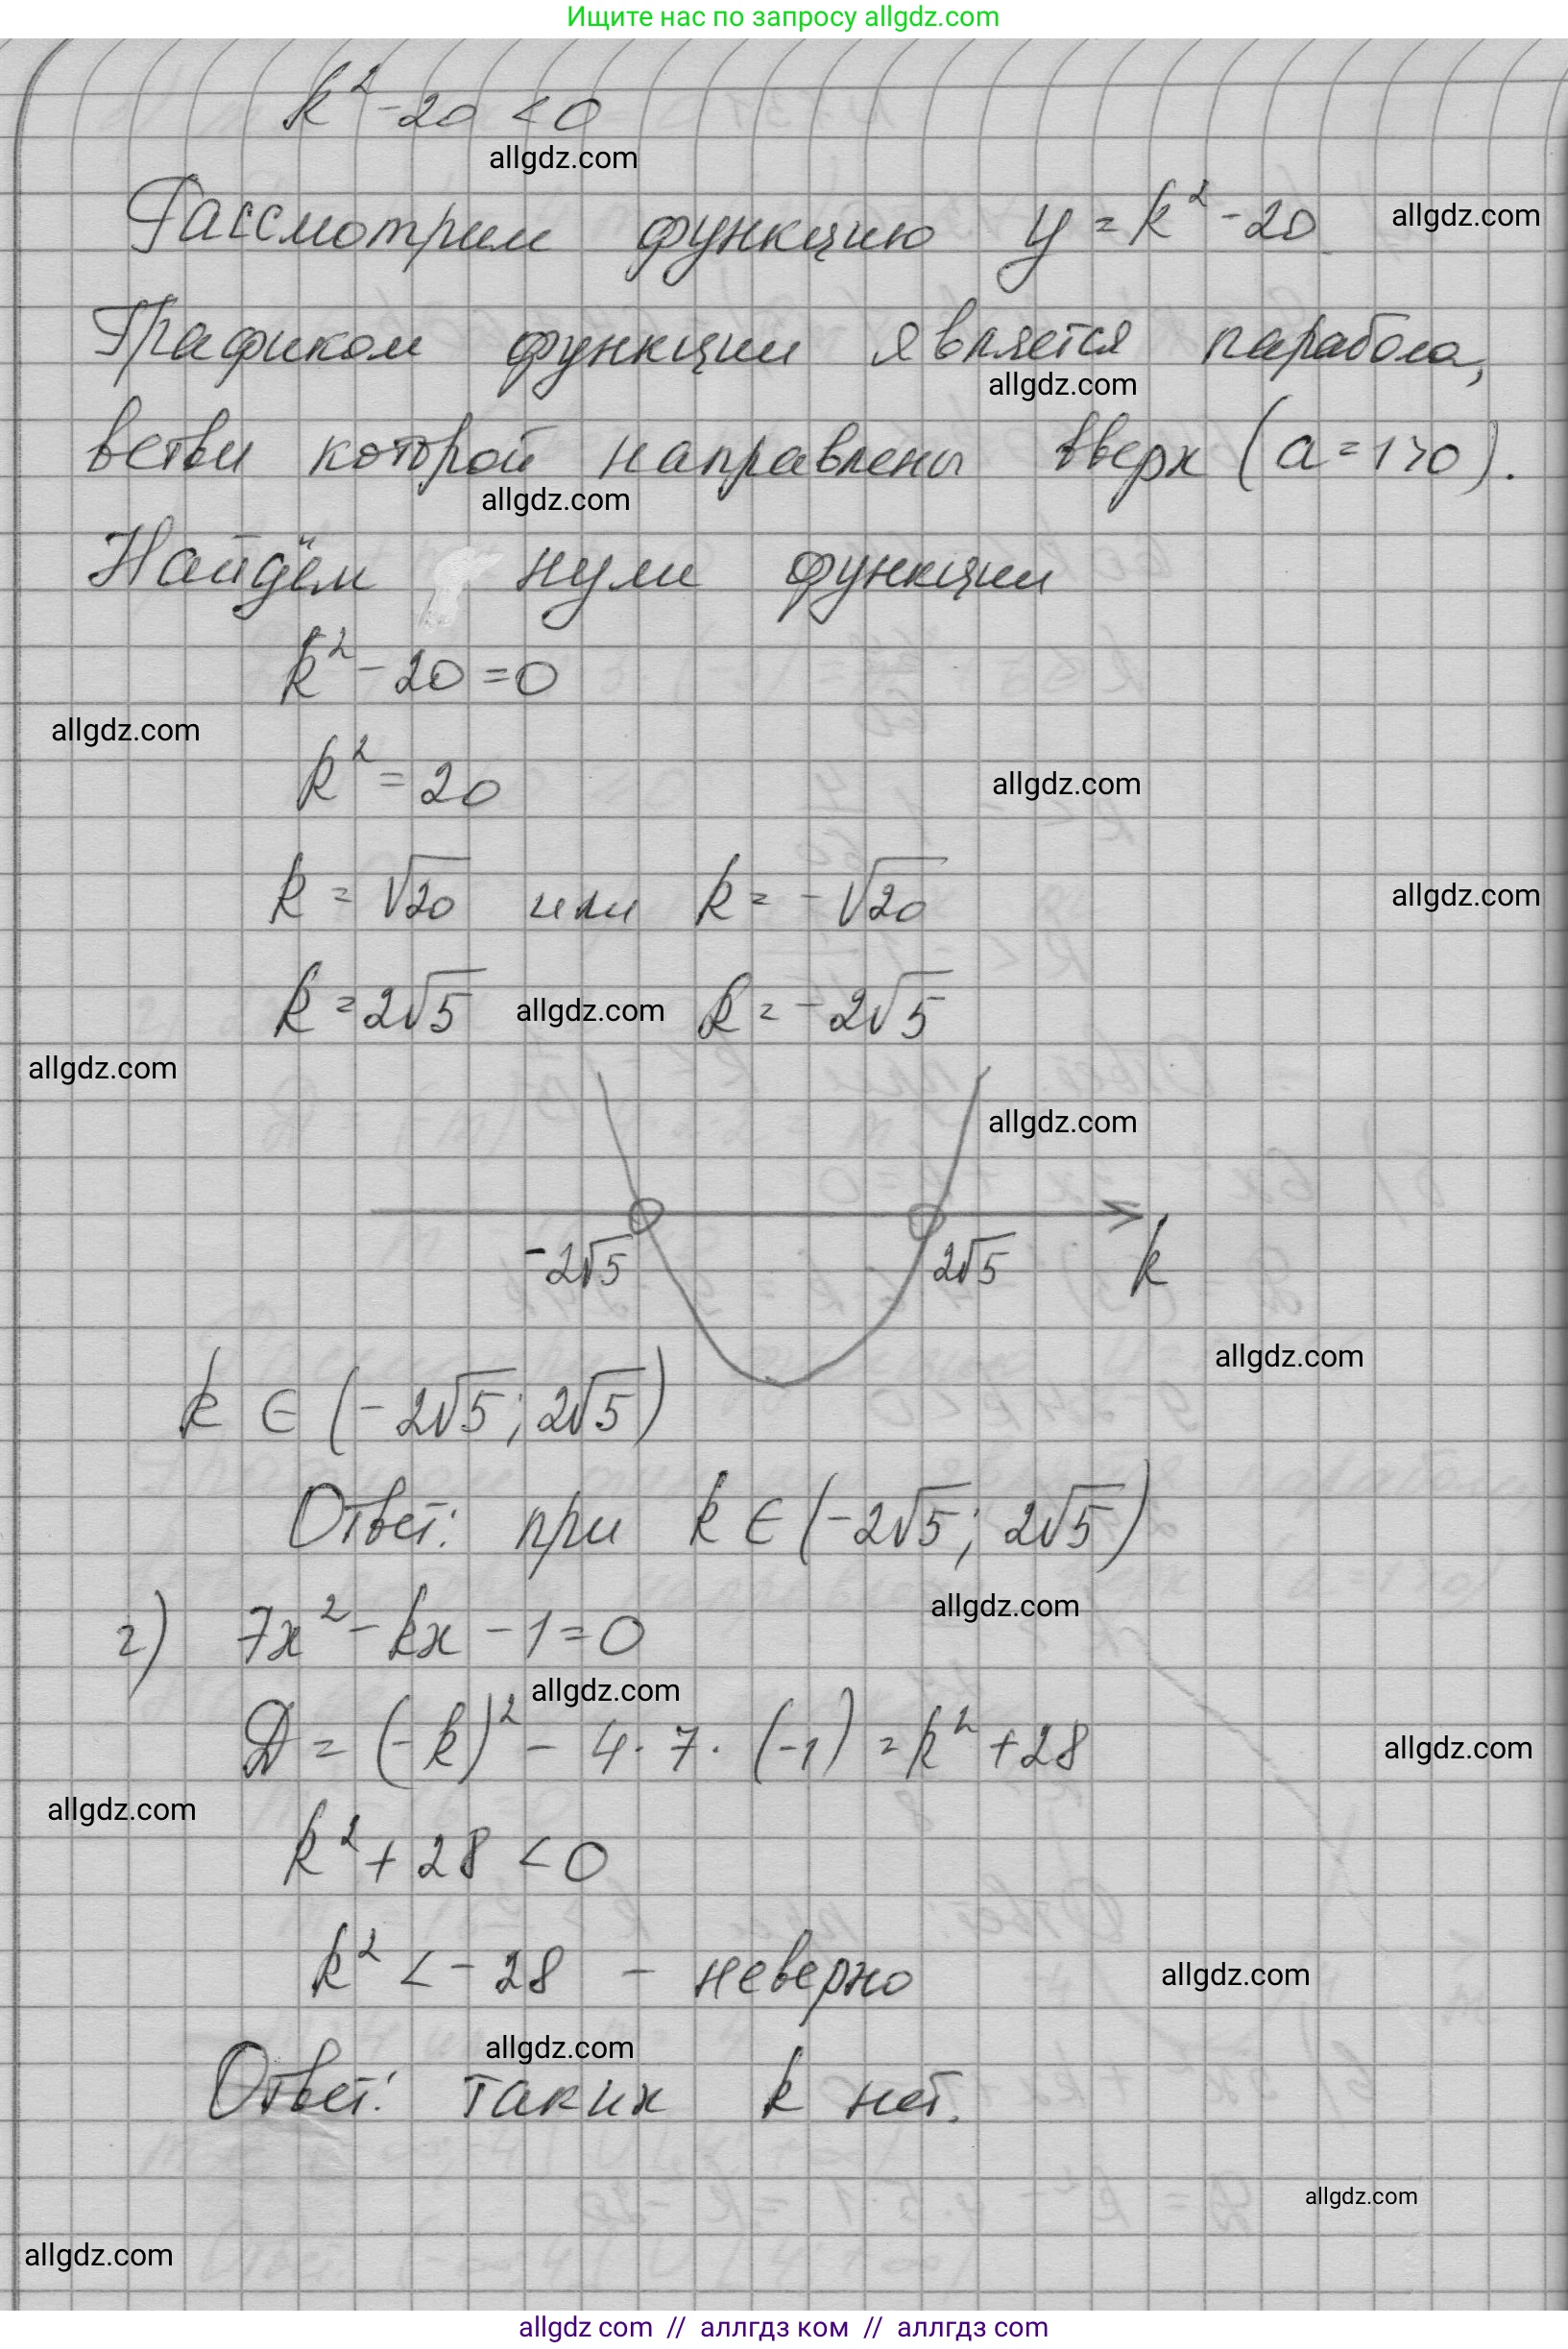 Ищите нас по запросу allgdz.com
k² - 20 < 0
allgdz.com
Рассмотрим функцию y = k² - 20
allgdz.com
Графиком функции является парабола,
allgdz.com
ветви которой направлены вверх (a = 1 > 0).
allgdz.com
Найдём нули функции
k² - 20 = 0
allgdz.com
k² = 20
allgdz.com
k = √20 или k = -√20
allgdz.com
k = 2√5 allgdz.com k = -2√5
allgdz.com
allgdz.com
-2√5 2√5 k
allgdz.com
k ∈ (-2√5; 2√5)
Ответ: при k ∈ (-2√5; 2√5)
allgdz.com
г) 7x² - kx - 1 = 0
allgdz.com
D = (-k)² - 4 · 7 · (-1) = k² + 28
allgdz.com
allgdz.com
k² + 28 < 0
k² < -28 - неверно
allgdz.com
allgdz.com
Ответ: таких k нет.
allgdz.com
allgdz.com
allgdz com // аллгдз ком // аллгдз com